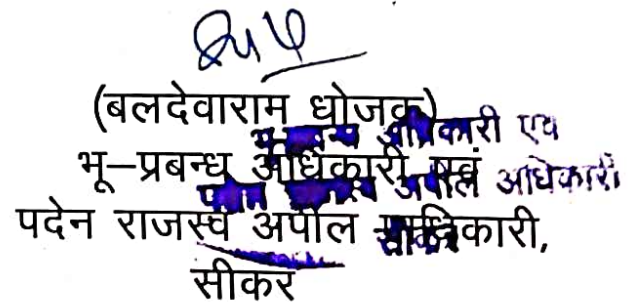 (बलदेवाराम धोजक)
भू–प्रबन्ध अधिकारी एवं
पदेन राजस्व अपील अधिकारी,
सीकर
अधिकारी एवं
अपील अधिकारी